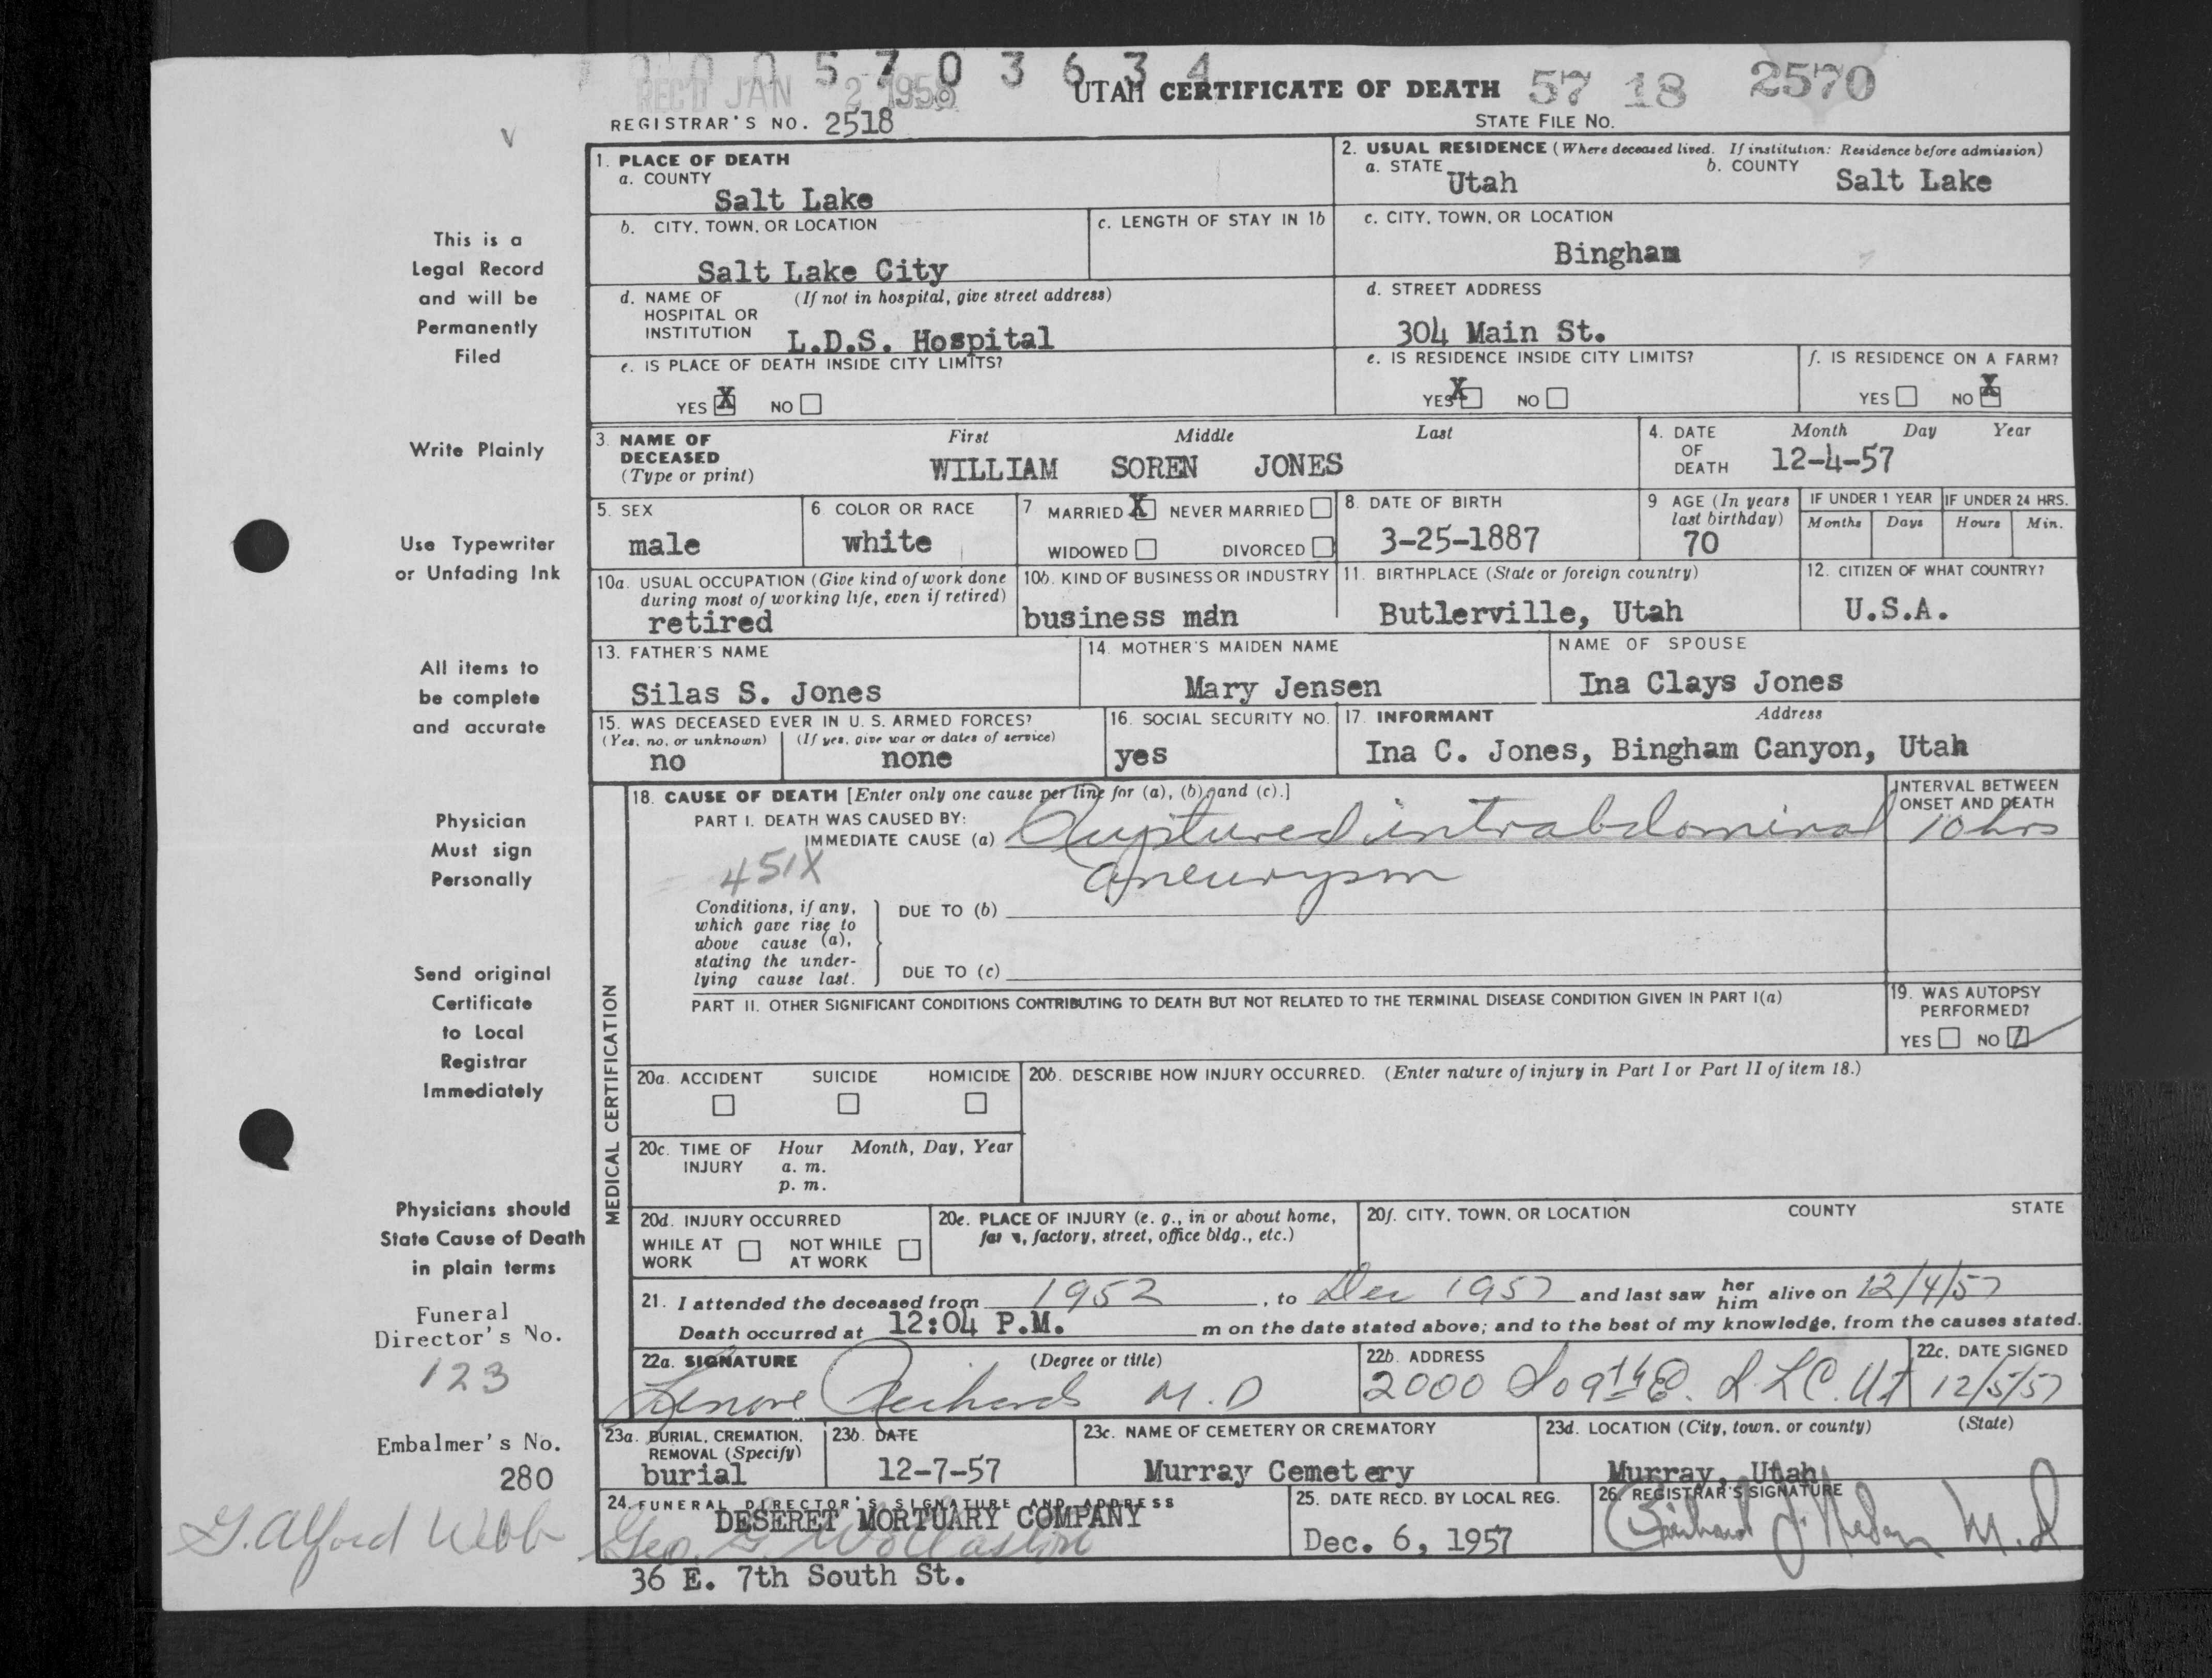 0 0 5 7 0 3 6 3 4
REC'D JAN 2 1958
UTAH CERTIFICATE OF DEATH 57 18 2570
REGISTRAR'S NO. 2518
STATE FILE NO.
This is a
Legal Record
and will be
Permanently
Filed
Write Plainly
Use Typewriter
or Unfading Ink
All items to
be complete
and accurate
Physician
Must sign
Personally
Send original
Certificate
to Local
Registrar
Immediately
Physicians should
State Cause of Death
in plain terms
Funeral
Director's No.
123
Embalmer's No.
280
G. Alford Webb
1. PLACE OF DEATH
a. COUNTY
Salt Lake
b. CITY, TOWN, OR LOCATION
Salt Lake City
c. LENGTH OF STAY IN 1b
d. NAME OF (If not in hospital, give street address)
HOSPITAL OR
INSTITUTION L.D.S. Hospital
e. IS PLACE OF DEATH INSIDE CITY LIMITS?
YES X NO
2. USUAL RESIDENCE (Where deceased lived. If institution: Residence before admission)
a. STATE Utah b. COUNTY Salt Lake
c. CITY, TOWN, OR LOCATION
Bingham
d. STREET ADDRESS
304 Main St.
e. IS RESIDENCE INSIDE CITY LIMITS?
YES X NO
f. IS RESIDENCE ON A FARM?
YES NO X
3. NAME OF DECEASED (Type or print)
First Middle Last
WILLIAM SOREN JONES
4. DATE OF DEATH
Month Day Year
12-4-57
5. SEX
male
6. COLOR OR RACE
white
7 MARRIED X NEVER MARRIED
WIDOWED DIVORCED
8. DATE OF BIRTH
3-25-1887
9 AGE (In years
last birthday)
70
IF UNDER 1 YEAR
Months Days
IF UNDER 24 HRS.
Hours Min.
10a. USUAL OCCUPATION (Give kind of work done
during most of working life, even if retired)
retired
10b. KIND OF BUSINESS OR INDUSTRY
business man
11. BIRTHPLACE (State or foreign country)
Butlerville, Utah
12. CITIZEN OF WHAT COUNTRY?
U.S.A.
13. FATHER'S NAME
Silas S. Jones
14. MOTHER'S MAIDEN NAME
Mary Jensen
NAME OF SPOUSE
Ina Clays Jones
15. WAS DECEASED EVER IN U. S. ARMED FORCES?
(Yes, no, or unknown) (If yes, give war or dates of service)
no none
16. SOCIAL SECURITY NO.
yes
17. INFORMANT Address
Ina C. Jones, Bingham Canyon, Utah
MEDICAL CERTIFICATION
18. CAUSE OF DEATH [Enter only one cause per line for (a), (b), and (c).]
PART I. DEATH WAS CAUSED BY:
IMMEDIATE CAUSE (a) Ruptured intrabdominal
aneurysm
INTERVAL BETWEEN
ONSET AND DEATH
10 hrs
451X
Conditions, if any,
which gave rise to
above cause (a),
stating the under-
lying cause last.
DUE TO (b)
DUE TO (c)
PART II. OTHER SIGNIFICANT CONDITIONS CONTRIBUTING TO DEATH BUT NOT RELATED TO THE TERMINAL DISEASE CONDITION GIVEN IN PART I(a)
19. WAS AUTOPSY
PERFORMED?
YES NO
20a. ACCIDENT SUICIDE HOMICIDE
20b. DESCRIBE HOW INJURY OCCURRED. (Enter nature of injury in Part I or Part II of item 18.)
20c. TIME OF INJURY
Hour Month, Day, Year
a. m.
p. m.
20d. INJURY OCCURRED
WHILE AT WORK NOT WHILE AT WORK
20e. PLACE OF INJURY (e. g., in or about home,
factory, street, office bldg., etc.)
20f. CITY, TOWN, OR LOCATION COUNTY STATE
21. I attended the deceased from 1952, to Dec 1957 and last saw her him alive on 12/4/57
Death occurred at 12:04 P.M. m on the date stated above; and to the best of my knowledge, from the causes stated.
22a. SIGNATURE (Degree or title)
Lenore Richards M.D
22b. ADDRESS
2000 So 9th E. S.L.C. Ut
22c. DATE SIGNED
12/5/57
23a. BURIAL, CREMATION,
REMOVAL (Specify)
burial
23b. DATE
12-7-57
23c. NAME OF CEMETERY OR CREMATORY
Murray Cemetery
23d. LOCATION (City, town, or county) (State)
Murray, Utah
24. FUNERAL DIRECTOR'S SIGNATURE AND ADDRESS
DESERET MORTUARY COMPANY
Geo. Wollaston
36 E. 7th South St.
25. DATE RECD. BY LOCAL REG.
Dec. 6, 1957
26. REGISTRAR'S SIGNATURE
M.D